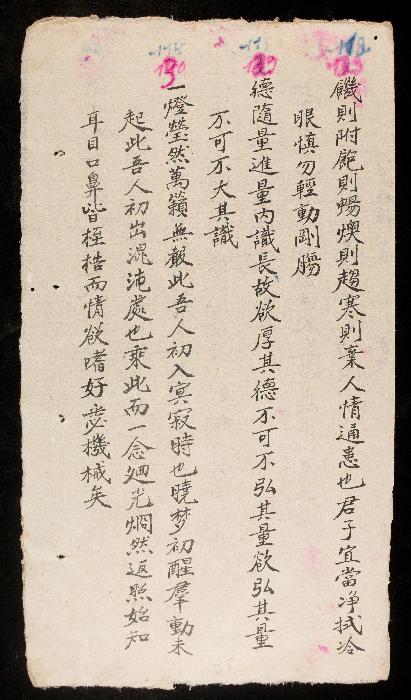 饑則附飽則颺燠則趨寒則棄人情通患也君子宜當净拭冷
眼慎勿輕動剛腸
德隨量進量內識長故欲厚其德不可不弘其量欲弘其量
不可不大其識
一燈螢然萬籟無聲此吾人初入冥寂時也曉梦初醒羣動未
起此吾人初出混沌處也乘此而一念廻光烱然返照始知
耳目口鼻皆桎梏而情欲嗜好悉機械矣